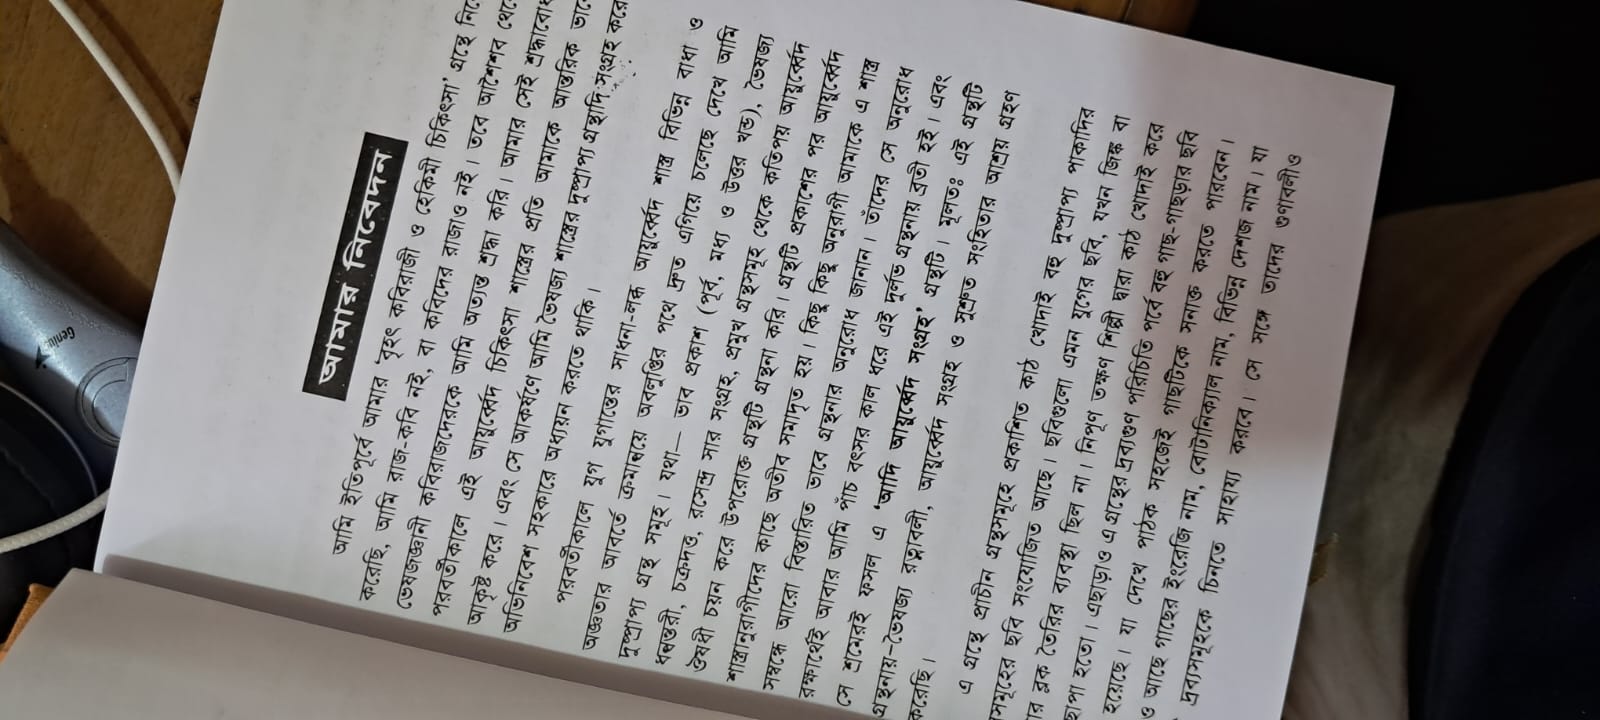 আমার নিবেদন
আমি ইতিপূর্বে আমার 'বৃহৎ কবিরাজী ও হেকিমী চিকিৎসা' গ্রন্থে
করেছি, আমি রাজ-কবি নই, বা কবিদের রাজাও নই। তবে আশৈশব
ভেষজজ্ঞানী কবিরাজদেরকে আমি অত্যন্ত শ্রদ্ধা করি। আমার সেই
পরবর্তীকালে এই আয়ুর্ব্বেদ চিকিৎসা শাস্ত্রের প্রতি আমাকে আন্তরিক
আকৃষ্ট করে। এবং সে আকর্ষণে আমি ভৈষজ্য শাস্ত্রের দুষ্প্রাপ্য গ্রন্থাদি সংগ্রহ করে
অভিনিবেশ সহকারে অধ্যয়ন করতে থাকি।
পরবর্তীকালে যুগ যুগান্তের সাধনা-লব্ধ আয়ুর্ব্বেদ শাস্ত্র বিভিন্ন বাধা ও
অজ্ঞতার আবর্তে ক্রমান্বয়ে অবলুপ্তির পথে দ্রুত এগিয়ে চলেছে দেখে আমি
দুষ্প্রাপ্য গ্রন্থ সমূহ। যথা— ভাব প্রকাশ (পূর্ব, মধ্য ও উত্তর খন্ড), ভৈষজ্য
ধন্বন্তরী, চক্রদত্ত, রসেন্দ্র সার সংগ্রহ, প্রমুখ গ্রন্থসমূহ থেকে কতিপয় আয়ুর্ব্বেদ
ঔষধী চয়ন করে উপরোক্ত গ্রন্থটি গ্রন্থনা করি। গ্রন্থটি প্রকাশের পর আয়ুর্ব্বেদ
শাস্ত্রানুরাগীদের কাছে অতীব সমাদৃত হয়। কিছু কিছু অনুরাগী আমাকে এ শাস্ত্র
সম্বন্ধে আরো বিস্তারিত ভাবে গ্রন্থনার অনুরোধ জানান। তাঁদের সে অনুরোধ
রক্ষার্থেই আবার আমি পাঁচ বৎসর কাল ধরে এই দুর্লভ গ্রন্থনায় ব্রতী হই। এবং
সে শ্রমেরই ফসল এ 'আদি আয়ুর্ব্বেদ সংগ্রহ' গ্রন্থটি। মূলতঃ এই গ্রন্থটি
গ্রন্থনায়-ভৈষজ্য রত্নাবলী, আয়ুর্ব্বেদ সংগ্রহ ও সুশ্রুত সংহিতার আশ্রয় গ্রহণ
করেছি।
এ গ্রন্থে প্রাচীন গ্রন্থসমূহে প্রকাশিত কাঠ খোদাই বহু দুষ্প্রাপ্য পাকাদির
ছবি সংযোজিত আছে। ছবিগুলো এমন যুগের ছবি, যখন জিঙ্ক বা
ব্লক তৈরির ব্যবস্থা ছিল না। নিপূণ তক্ষণ শিল্পী দ্বারা কাঠ খোদাই করে
ছাপা হতো। এছাড়াও এ গ্রন্থের দ্রব্যগুণ পরিচিতি পর্বে বহু গাছ-গাছড়ার ছবি
হয়েছে। যা দেখে পাঠক সহজেই গাছটিকে সনাক্ত করতে পারবেন।
ও আছে গাছের ইংরেজি নাম, বোটানিক্যাল নাম, বিভিন্ন দেশজ নাম। যা
দ্রব্যসমূহকে চিনতে সাহায্য করবে। সে সঙ্গে তাদের গুণাবলীও
Genius